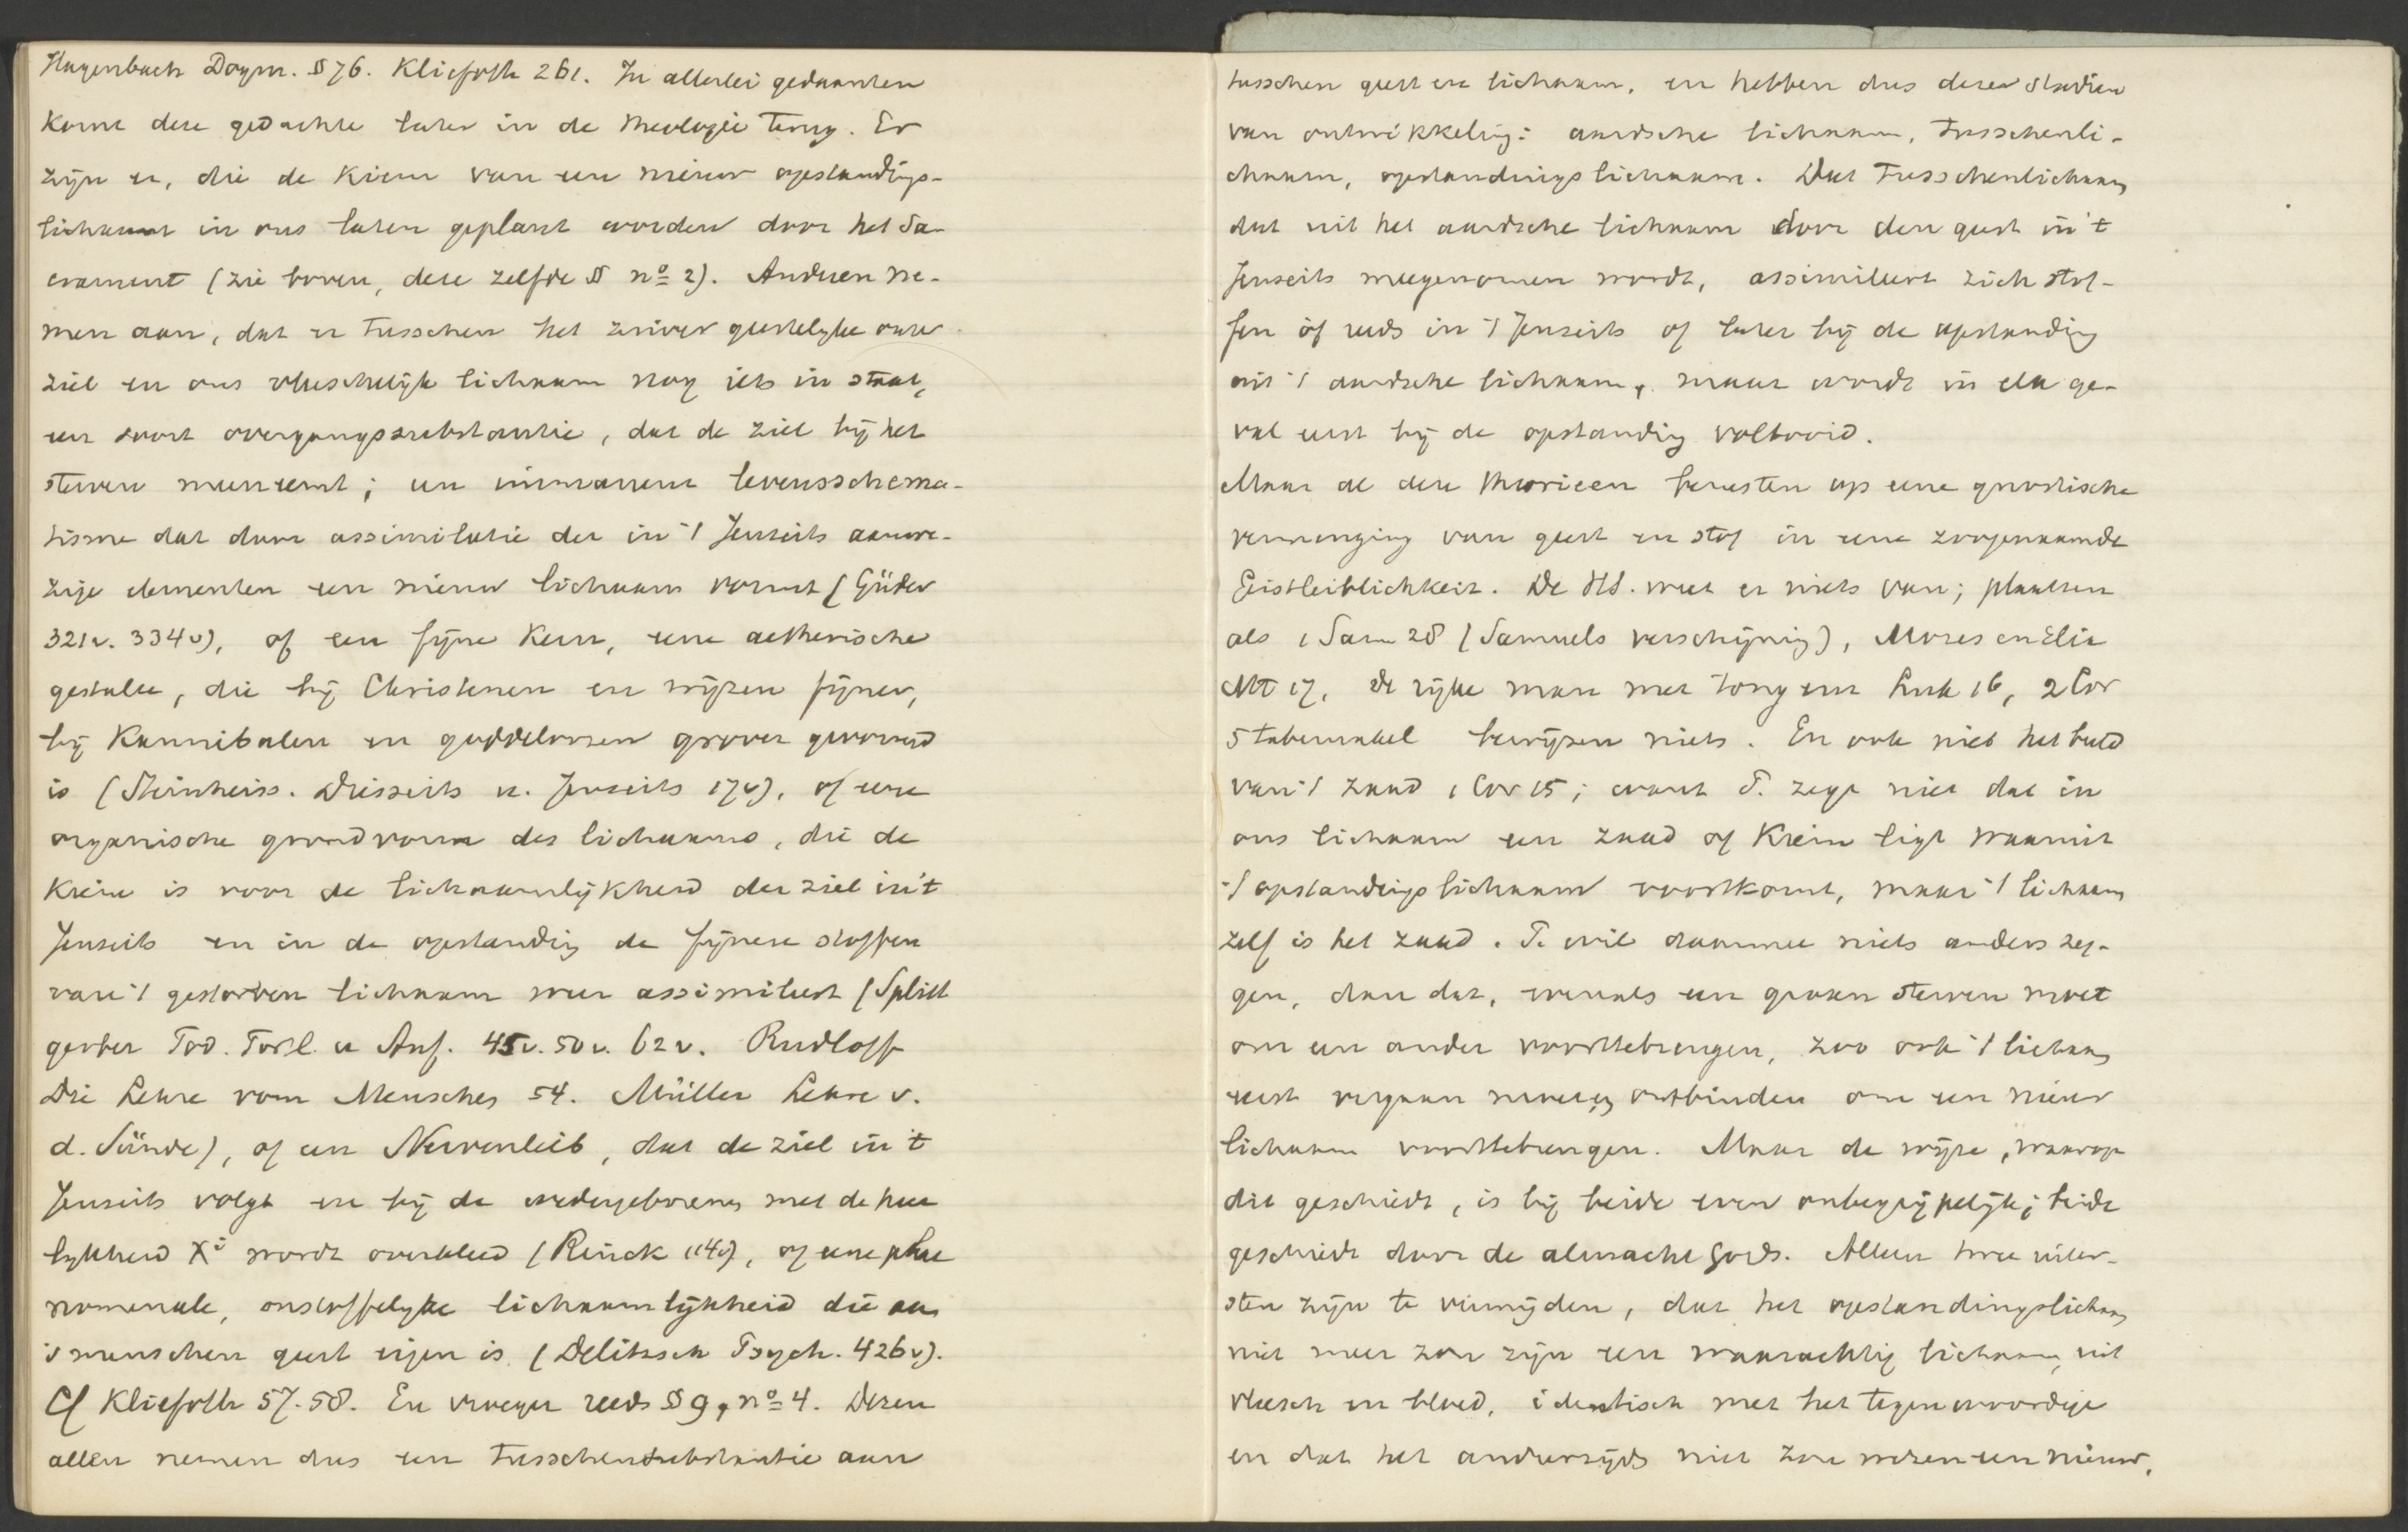 Hagenbach Dogm. § 76. Kliefoth 261. In allerlei gedaanten
komt deze gedachte later in de theologie terug. Er
zijn er, die de kiem van een nieuw opstandings-
lichaam in ons laten geplant worden door het Sa-
crament (zie boven, deze zelfde § nº 2). Anderen ne-
men aan, dat er tusschen het zuiver geestelijke onzer
ziel en ons vleeschelijk lichaam nog iets in staat,
een soort overgangssubstantie, dat de ziel bij het
sterven meeneemt; een immanent levensschema-
tisme dat door assimilatie der in 't Jenseits aanwe-
zige elementen een nieuw lichaam vormt (Güder
321v. 334v), of een fijne kern, eene aetherische
gestalte, die bij Christenen en wijzen fijner,
bij Kannibalen en goddeloozen grover gevormd
is (Steinheiss. Diesseits u. Jenseits 17v), of eene
organische grondvorm des lichaams, die de
kiem is voor de lichaamlijkheid der ziel in 't
Jenseits en in de opstanding de fijnere stoffen
van 't gestorven lichaam weer assimileert (Splitt
gerber Tod. Fortl. u Auf. 45v. 50v. 62v. Rudloff
Die Lehre vom Menschen 54. Müller Lehre v.
d. Sünde), of een Nervenleib, dat de ziel in 't
Jenseits volgt en bij de wedergeborenen met de heer
lijkheid Xi wordt overkleed (Rinck 114v), of eene phae
nomenale, onstoffelijke lichaamlijkheid die aan
's menschen geest eigen is (Delitzsch Psych. 426v).
Cf Kliefoth 57.58. En vroeger reeds § 9, nº 4. Dezen
allen nemen dus een tusschensubstantie aan
tusschen geest en lichaam, en hebben dus dezen stadiën
van ontwikkeling: aardsche lichaam, tusschenli-
chaam, opstandingslichaam. Dat tusschenlichaam
dat uit het aardsche lichaam door den geest in 't
Jenseits meegenomen wordt, assimileert zich stof-
fen òf reeds in 't Jenseits of later bij de opstanding
uit 't aardsche lichaam, maar wordt in elk ge-
val eerst bij de opstanding voltooid.
Maar al deze theorieen berusten op eene gnostische
vermenging van geest en stof in eene zoogenaamde
Geistleiblichkeit. De HS. weet er niets van; plaatsen
als 1 Sam 28 (Samuels verschijning), Mozes en Elia
Mt 17, de rijke man met tong enz Luk 16, 2 Cor
5 tabernakel bewijzen niets. En ook niet het beeld
van 't zaad 1 Cor 15; want P. zegt niet dat in
ons lichaam een zaad of kiem ligt waaruit
't opstandingslichaam voortkomt, maar 't lichaam
zelf is het zaad. P. wil daarmee niets anders zeg-
gen, dan dat, evenals een graan sterven moet
om een ander voorttebrengen, zoo ook 't lichaam
eerst vergaan moet en ontbinden om een nieuw
lichaam voorttebrengen. Maar de wijze, waarop
dit geschiedt, is bij beide even onbegrijpelijk; beide
geschiedt door de almacht Gods. Alleen twee uiter-
sten zijn te vermijden, dat het opstandingslichaam
niet meer zou zijn een waarachtig lichaam, uit
vleesch en bloed, identisch met het tegenwoordige
en dat het anderzijds niet zou wezen een nieuw,